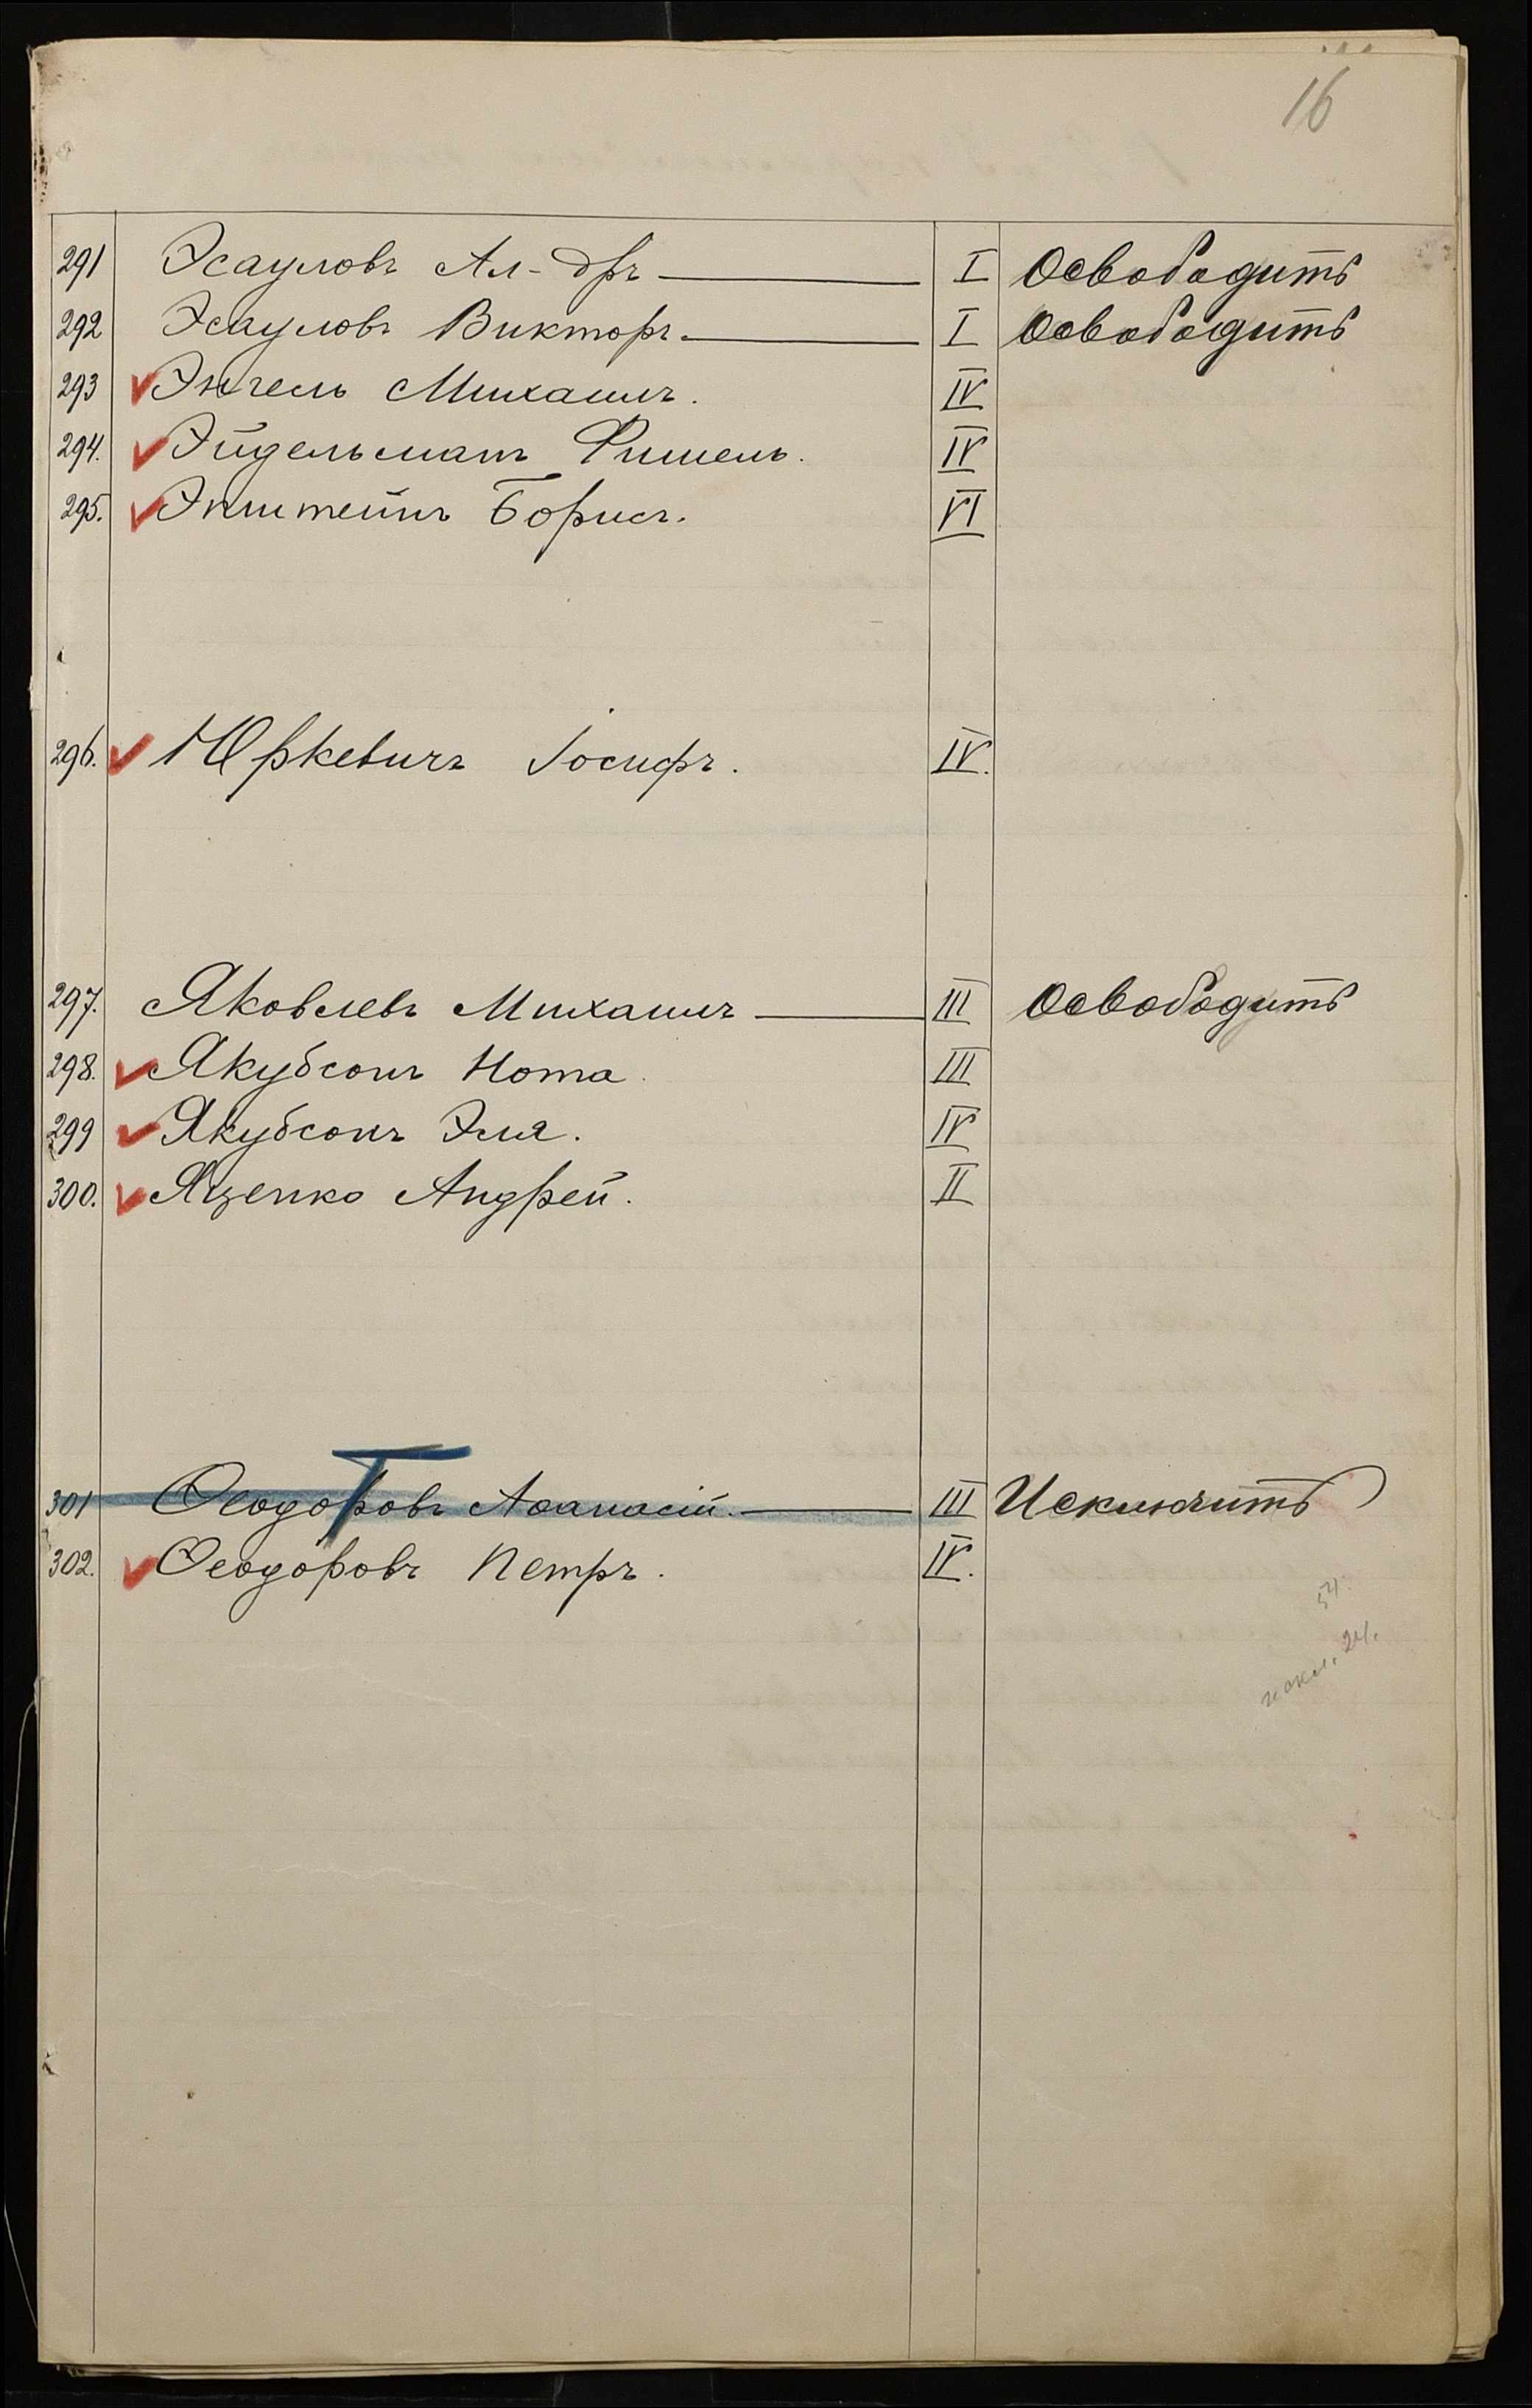 16
291 Эсауловъ Ал-дръ I Освободить
292 Эсауловъ Викторъ. I Освободить
293 Энгель Михаилъ. IV
294. Эйдельманъ Фишель. IV
295. Эпштейнъ Борисъ. VI
296. Юркевичъ Іосифъ. IV.
297. Яковлевъ Михаилъ III Освободить
298. Якубсонъ Нота. III
299 Якубсонъ Эля. IV
300. Яценко Андрей. II
301 Ѳеодоровъ Аѳанасій. III Исключить
302. Ѳеодоровъ Петръ. IV.
54.
искл. 24.